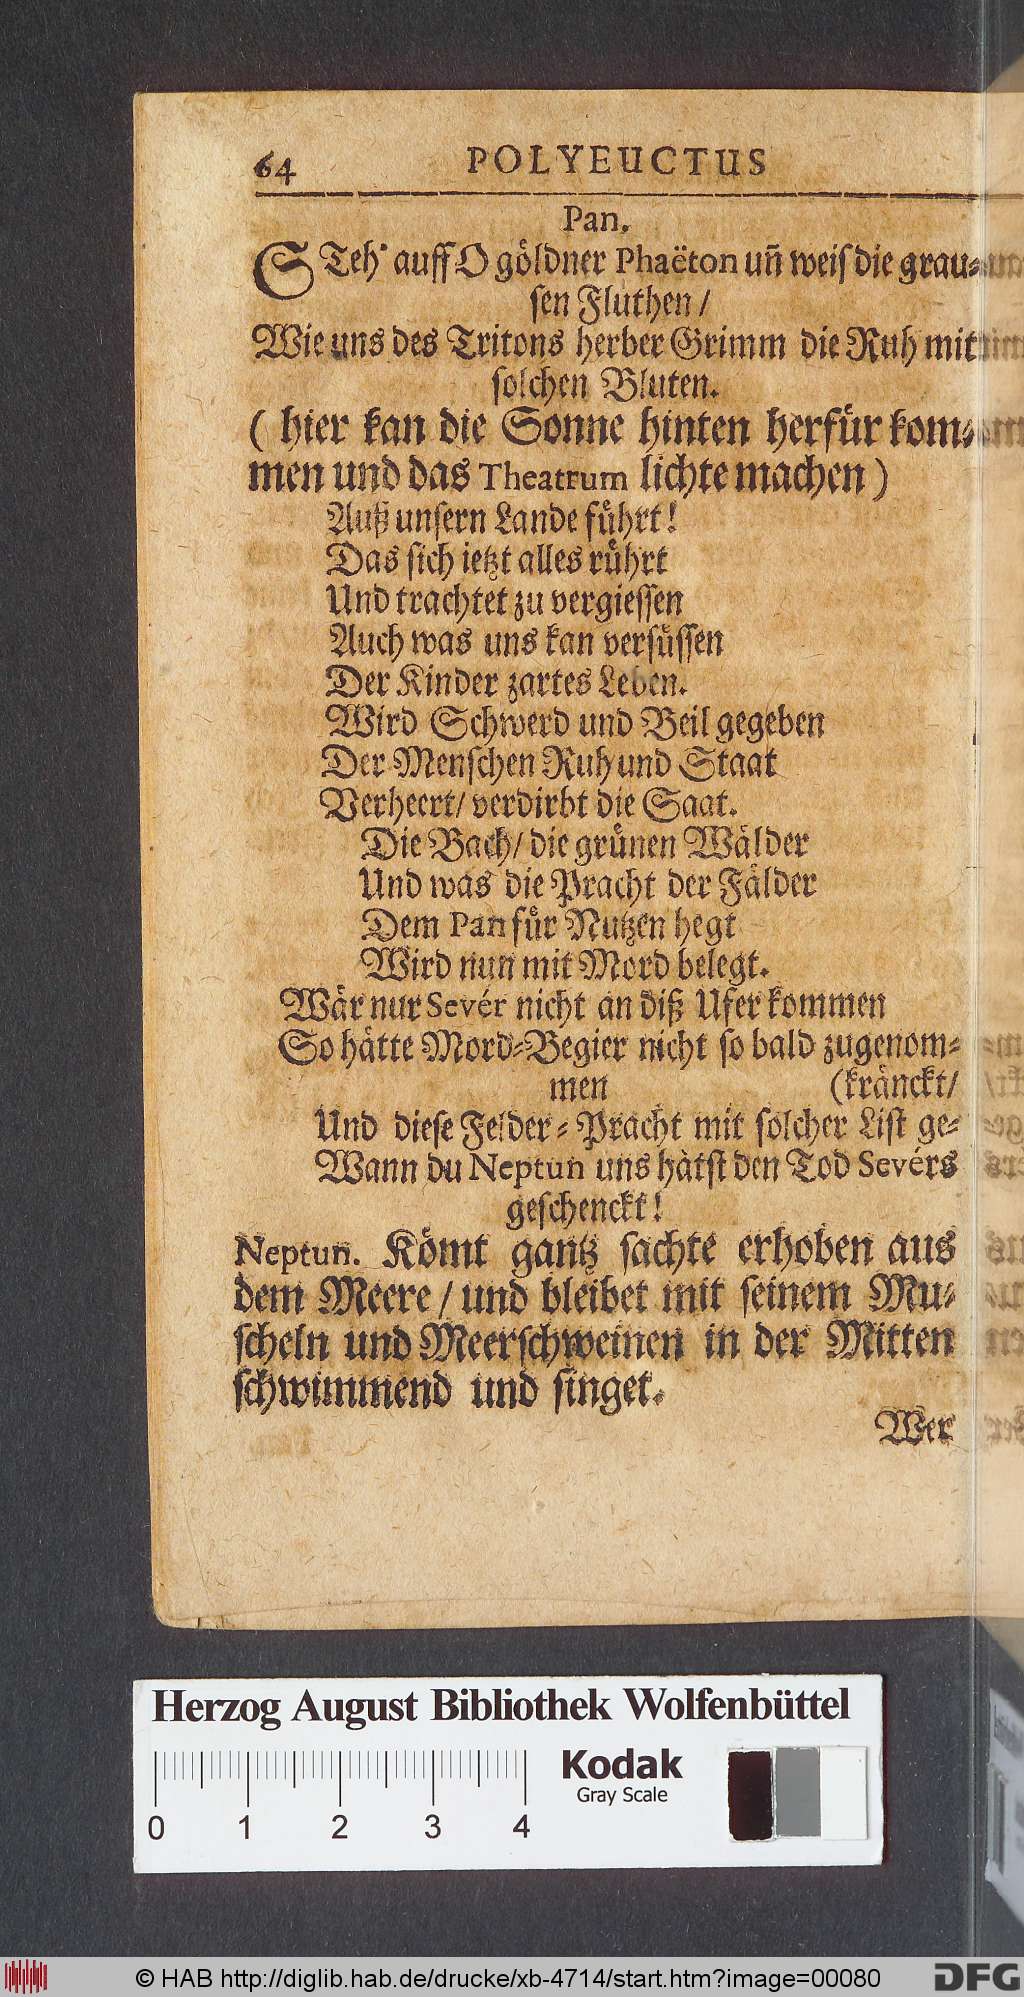 64 POLYEUCTUS
Pan.
STeh' auff O göldner Phaëton uñ weis die grau-
sen Fluthen /
Wie uns des Tritons herber Grimm die Ruh mit
solchen Bluten.
( hier kan die Sonne hinten herfür kom-
men und das Theatrum lichte machen )
Auß unsern Lande führt!
Das sich ietzt alles rührt
Und trachtet zu vergiessen
Auch was uns kan versüssen
Der Kinder zartes Leben.
Wird Schwerd und Beil gegeben
Der Menschen Ruh und Staat
Verheert / verdirbt die Saat.
Die Bach / die grünen Wälder
Und was die Pracht der Fälder
Dem Pan für Nutzen hegt
Wird nun mit Mord belegt.
Wär nur Sevér nicht an diß Ufer kommen
So hätte Mord-Begier nicht so bald zugenom-
men (kränckt /
Und diese Felder-Pracht mit solcher List ge-
Wann du Neptun uns hätst den Tod Sevérs
geschenckt!
Neptun. Kömt gantz sachte erhoben aus
dem Meere / und bleibet mit seinem Mu-
scheln und Meerschweinen in der Mitten
schwimmend und singet.
Wer
Herzog August Bibliothek Wolfenbüttel
Kodak
Gray Scale
0 1 2 3 4
© HAB http://diglib.hab.de/drucke/xb-4714/start.htm?image=00080
DFG